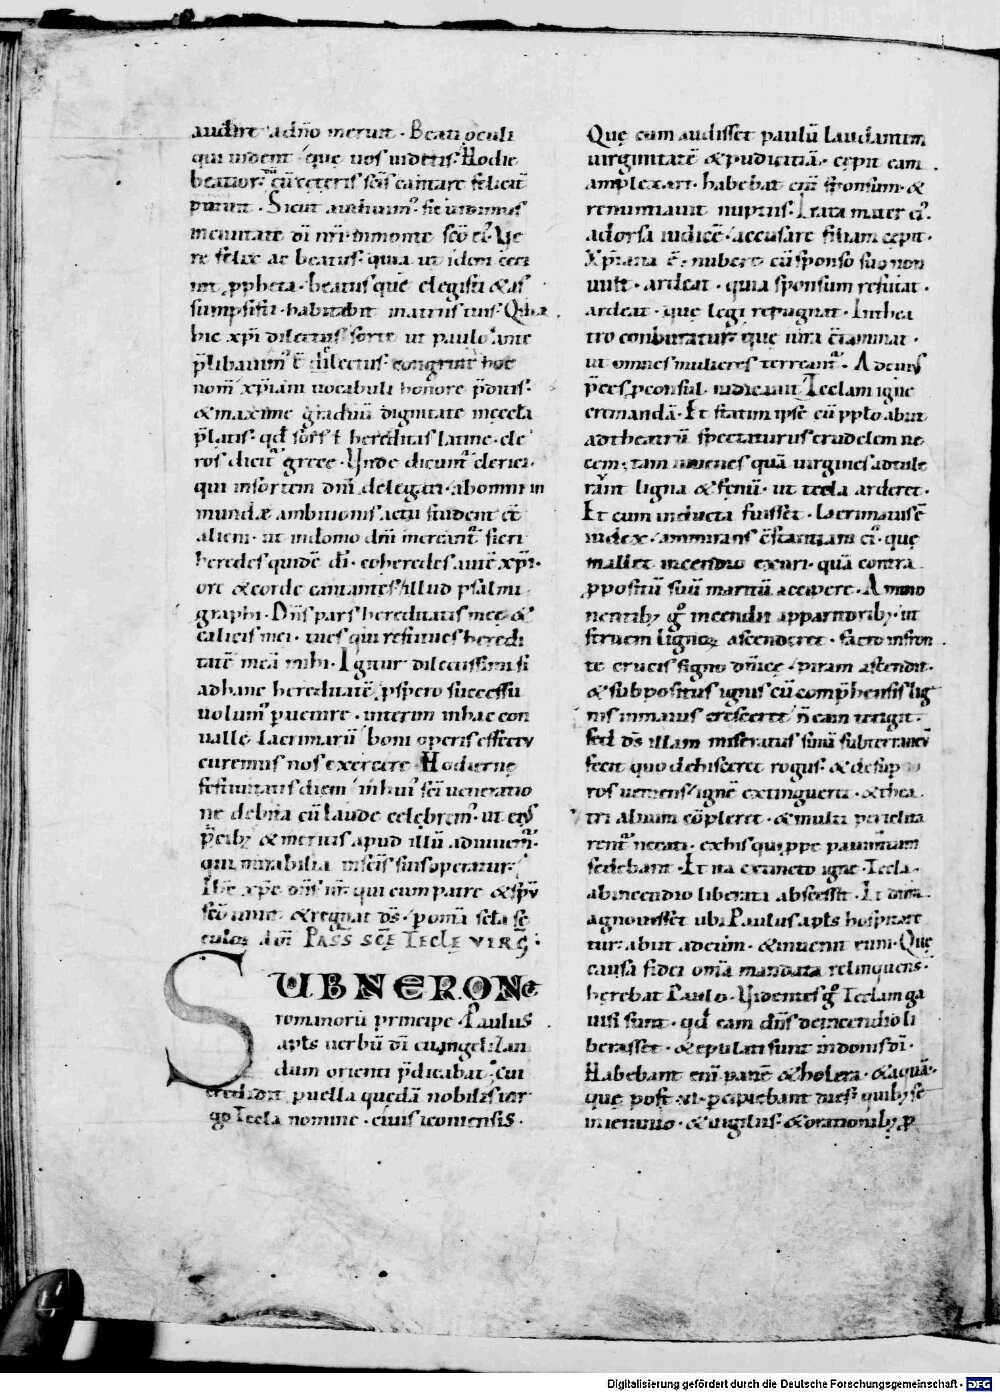 audire a dño merunt. Beati oculi
qui uident que uos uidetis. Hodie
beatior cū ceteris scīs cantare
Sicut audiuim̄. sic uidimus
in ciuitate dī nrī. in monte scō ei. Ve
re felix ac beatus. quia ut idem ceci
nit ꝓpheta. beatus quē elegisti & as
sumpsisti. habitabit in atriis tuis.
hic xp̄i dilectus sorte ut paulo ante
p̄libauim̄ ē dilectus. congruit hoc
nom̄ xp̄iani uocabuli honore p̄ditis.
& maxime graduū dignitate in ęcclā
p̄latis. qđ sors ł hereditas latine. cle
ros dicit̄ grece. Vnde dicunt̄ clerici.
qui in sortem dn̄i delegati. ab omni in
mundæ ambitionis actu student eē
alieni. ut in domo dn̄i mereant̄ fieri
heredes quidē dī. coheredes autē xp̄i.
ore & corde cantantes illud psalmi
graphi. Dn̄s pars hereditatis meę &
calicis mei. tu es qui restitues heredi
tatē meā mihi. Igitur dilectissimi si
ad hanc hereditatē ꝓspero successu
uolum̄ puenire. interim in hac con
ualle lacrimarū boni operis effectu
curemus nos exercere. Hodiernę
festiuitatis diem in hui sc̄i ueneratio
ne debita cū laude celebrem̄. ut eiꝰ
p̄cibꝫ & meritis apud illū adiuuem̄.
qui mirabilia in sc̄is suis operatur.
Ihc xp̄c dn̄s nr̄. qui cum patre & sp̄u
sc̄o uiuit & regnat dš. ꝑ om̄ia sc̄la sc̄
culoꝝ am̄. PASS̄ SCĘ TECLĘ VIRḠ.
SUB NERONE
romanorū principe. Paulus
apl̄s uerbū dī euangelizan
dum orienti p̄dicabat. Cui
credidit puella quedā nobilis uir
go Tecla nomine. ciuis iconiensis.
Quę cum audisset paulū laudantem
uirginitatē & pudicitiā. cepit eam
amplexari. habebat enī sponsum. &
renuntiauit nuptiis. Irata mater eī.
adorsa iudicē. accusare filiam cepit.
Xp̄iana ē. nubere cū sponso suo non
uult. ardeat. quia sponsum refutat.
ardeat. quę legi repugnat. In thea
tro conburatur. quę iura c̄taminat.
ut omnes mulieres terreant̄. Ad cuiꝰ
p̄ces ꝓconsul. iudicauit Teclam igne
cremandā. Et statim ipse cū pp̄lo abiit
ad theatrū spectaturus crudelem ne
cem. tam iuuenes quā virgines adtule
rant ligna & fenū. ut tecla arderet.
Et cum inducta fuisset. lacrimatus ē
iudex. ammirans c̄stantiam eī. quę
mallet incendio exuri. quā contra
ꝓpositū suū maritū accipere. Ammo
nentibꝫ gͦ incendii apparitoribꝫ. ut
struem lignoꝝ ascenderet. facto in fron
te crucis signo dn̄icę. piram ascendit.
& subpositus ignis cū comp̄hensis lig
nis in maius cresceret. n̄ eam tetigit.
sed dš illam miseratus sonū subterraneū
fecit quo dehisceret rogus. & desup
ros uemens ignē extingueret. & thea
tri alueum cōpleret. & multi periclita
rent̄ necati. ex his quippe pauimentum
sedebant. Et ita extincto igne. Tecla
ab incendio liberata abscessit. Et dum
agnouisset ubi Paulus apl̄s hospitare
tur. abiit ad eum. & inuenit eum. Quę
causa fidei om̄ia mandata relinquens.
herebat Paulo. Videntes gͦ Teclam ga
uisi sunt. qđ eam dn̄s de incendio li
berasset. & epulati sunt in donis dī.
Habebant enī panē & holera. & aquā.
quę post .vi. ꝑcipiebant dies. quibꝫ se
in ieiunio. & uigiliis. & orationibꝫ ꝑ
Digitalisierung gefördert durch die Deutsche Forschungsgemeinschaft - DFG